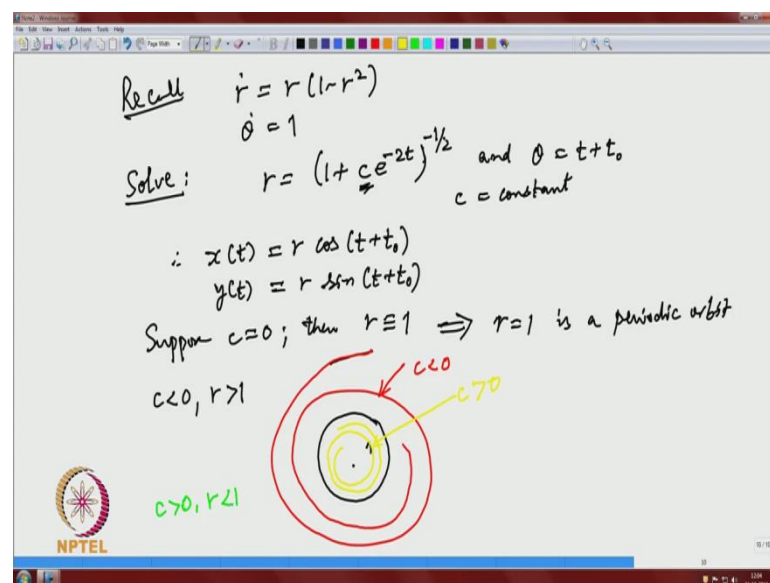 Note2 - Windows Journal
File Edit View Insert Actions Tools Help
Page Width
B
Recall ṙ = r (1-r²)
θ̇ = 1
Solve: r = (1 + c e^{-2t})^{-1/2} and θ = t + t₀
c = constant
∴ x(t) = r cos (t+t₀)
y(t) = r sin (t+t₀)
Suppose c=0; then r ≡ 1 ⟹ r=1 is a periodic orbit
c<0
c<0, r>1
c>0
1
c>0, r<1
NPTEL
10/10
10
1204